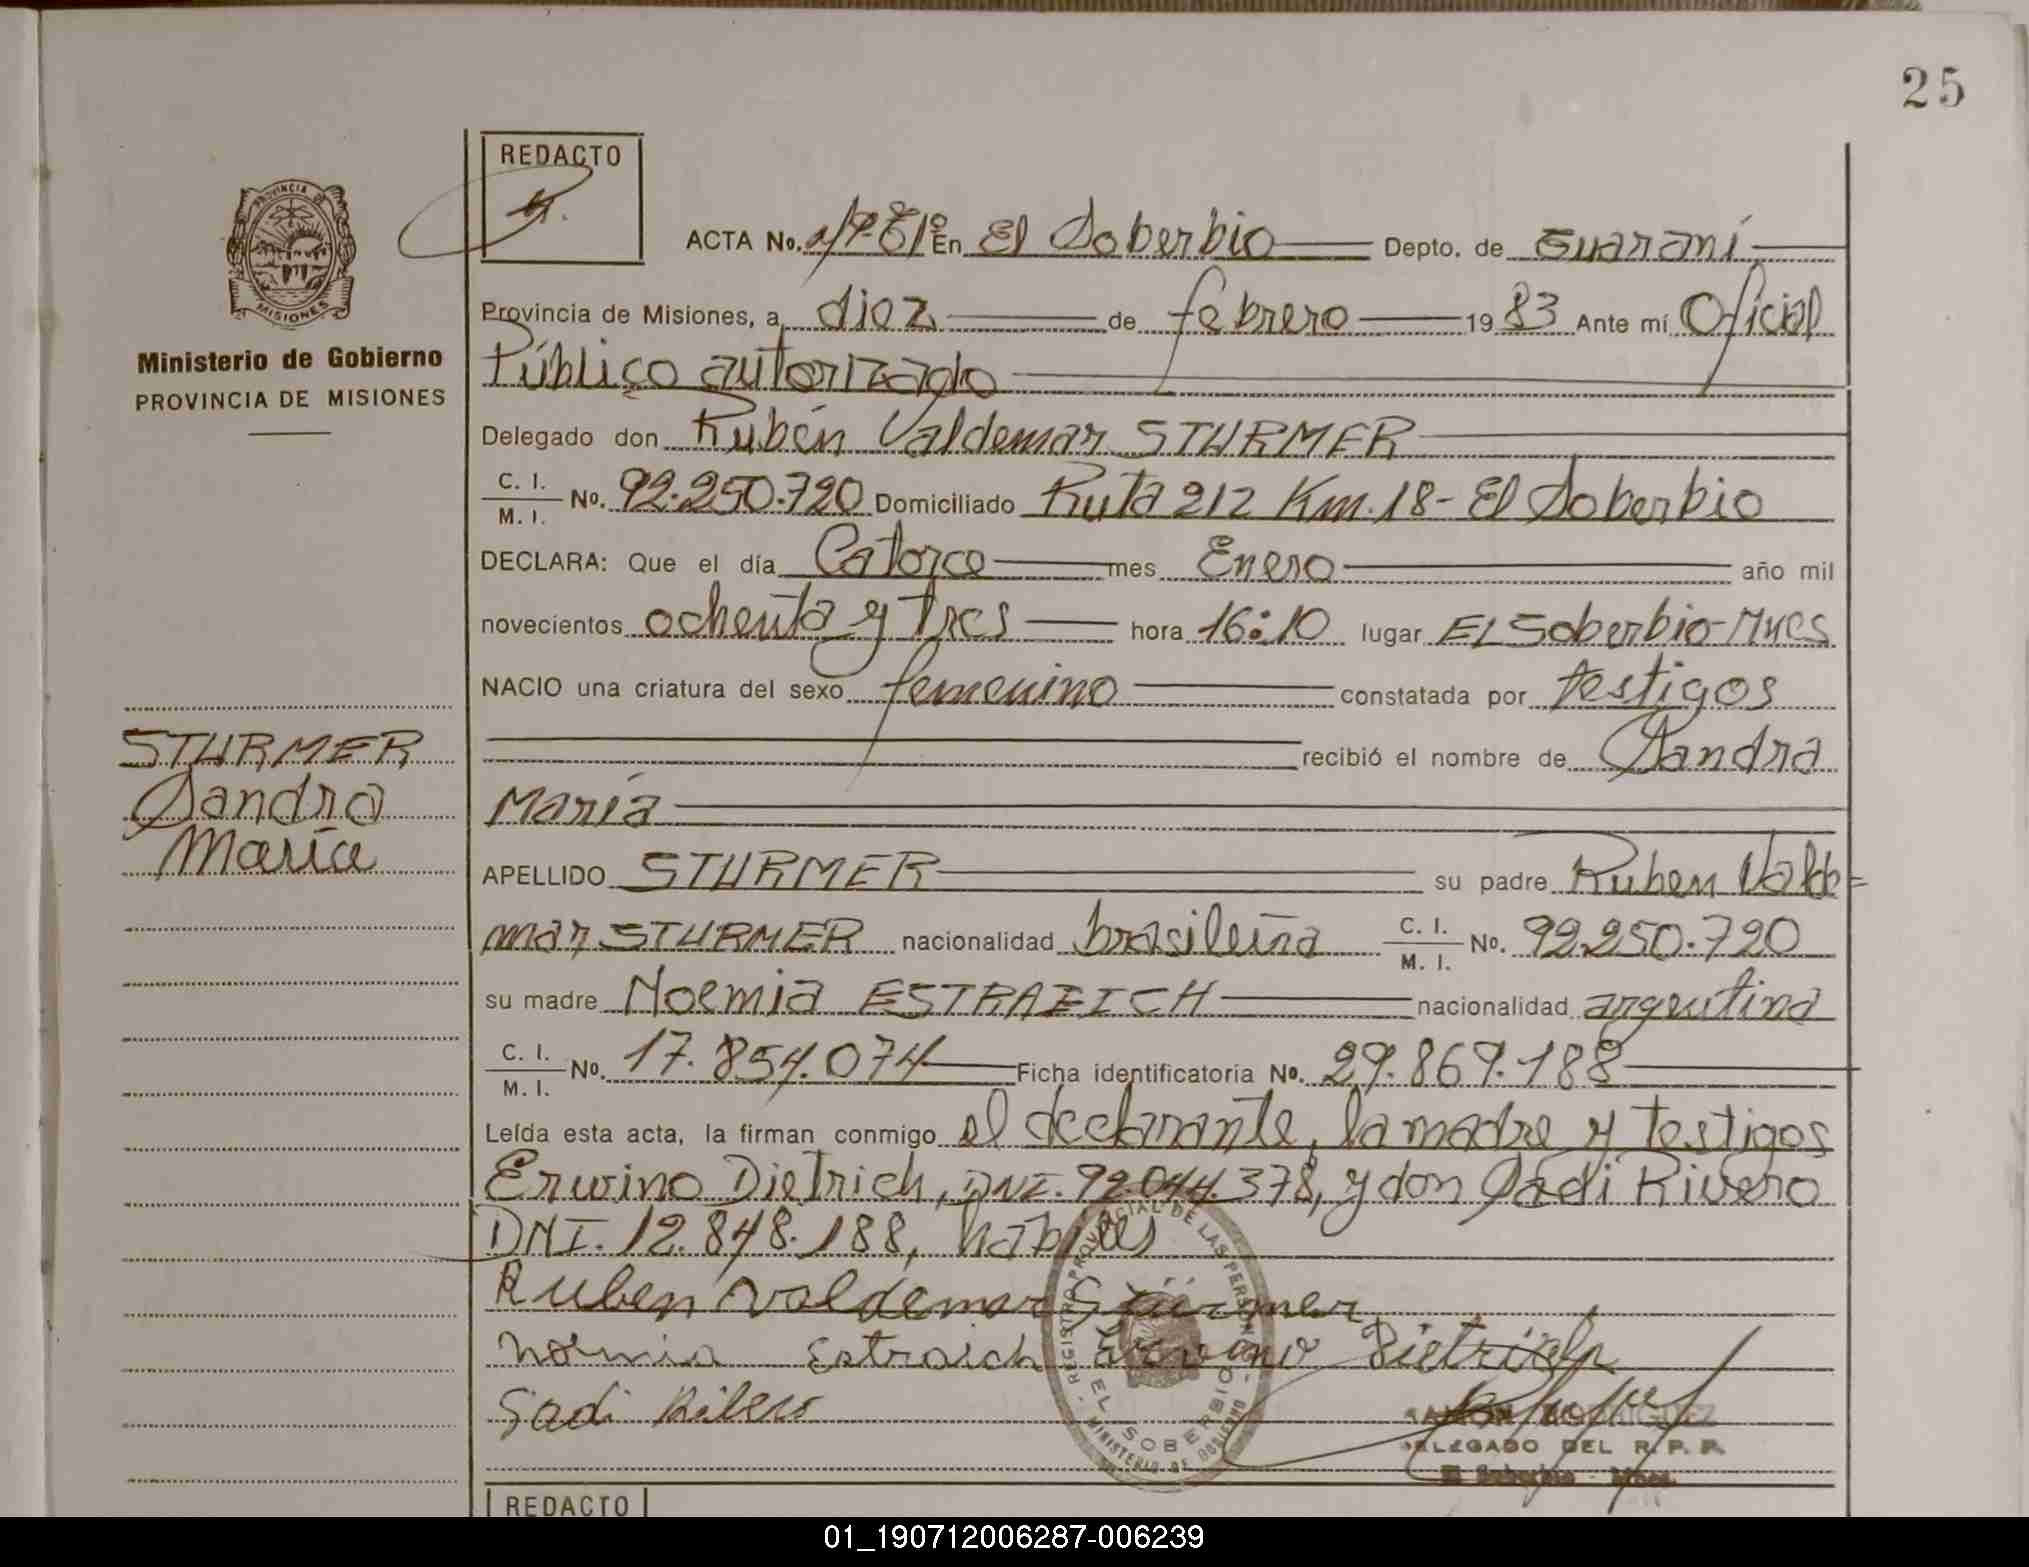 25
REDACTO
ACTA No. En El Soberbio Depto. de Guaraní
Provincia de Misiones, a diez de febrero 1983 Ante mí Oficial
Público autorizado
Delegado don Rubén Valdemar STURMER
C. I.
M. I. No. 92.250.720 Domiciliado Ruta 212 Km. 18 - El Soberbio
DECLARA: Que el día Catorce mes Enero año mil
novecientos ochenta y tres hora 16:10 lugar EL Soberbio-Mnes
NACIO una criatura del sexo femenino constatada por testigos
recibió el nombre de Sandra
María
APELLIDO STURMER su padre Ruben Valde=
mar STURMER nacionalidad brasileña C. I.
M. I. No. 92.250.720
su madre Noemia ESTRAEICH nacionalidad argentina
C. I.
M. I. No. 17.854.074 Ficha identificatoria No. 29.869.188
Leída esta acta, la firman conmigo el declarante, la madre y testigos
Erwino Dietrich, DNI. 92.044.378, y don Sadi Rivero
DNI. 12.848.188, habiles
Ruben Valdemar Stürmer
Noemia Estraich Erwino Dietrich
Sadi Ribero
RAMON RODRIGUEZ
DELEGADO DEL R. P. P.
El Soberbio - Mnes.
REGISTRO PROVINCIAL DE LAS PERSONAS
EL SOBERBIO
MINISTERIO DE GOBIERNO
REDACTO
PROVINCIA DE
MISIONES
Ministerio de Gobierno
PROVINCIA DE MISIONES
STURMER
Sandra
María
01_190712006287-006239